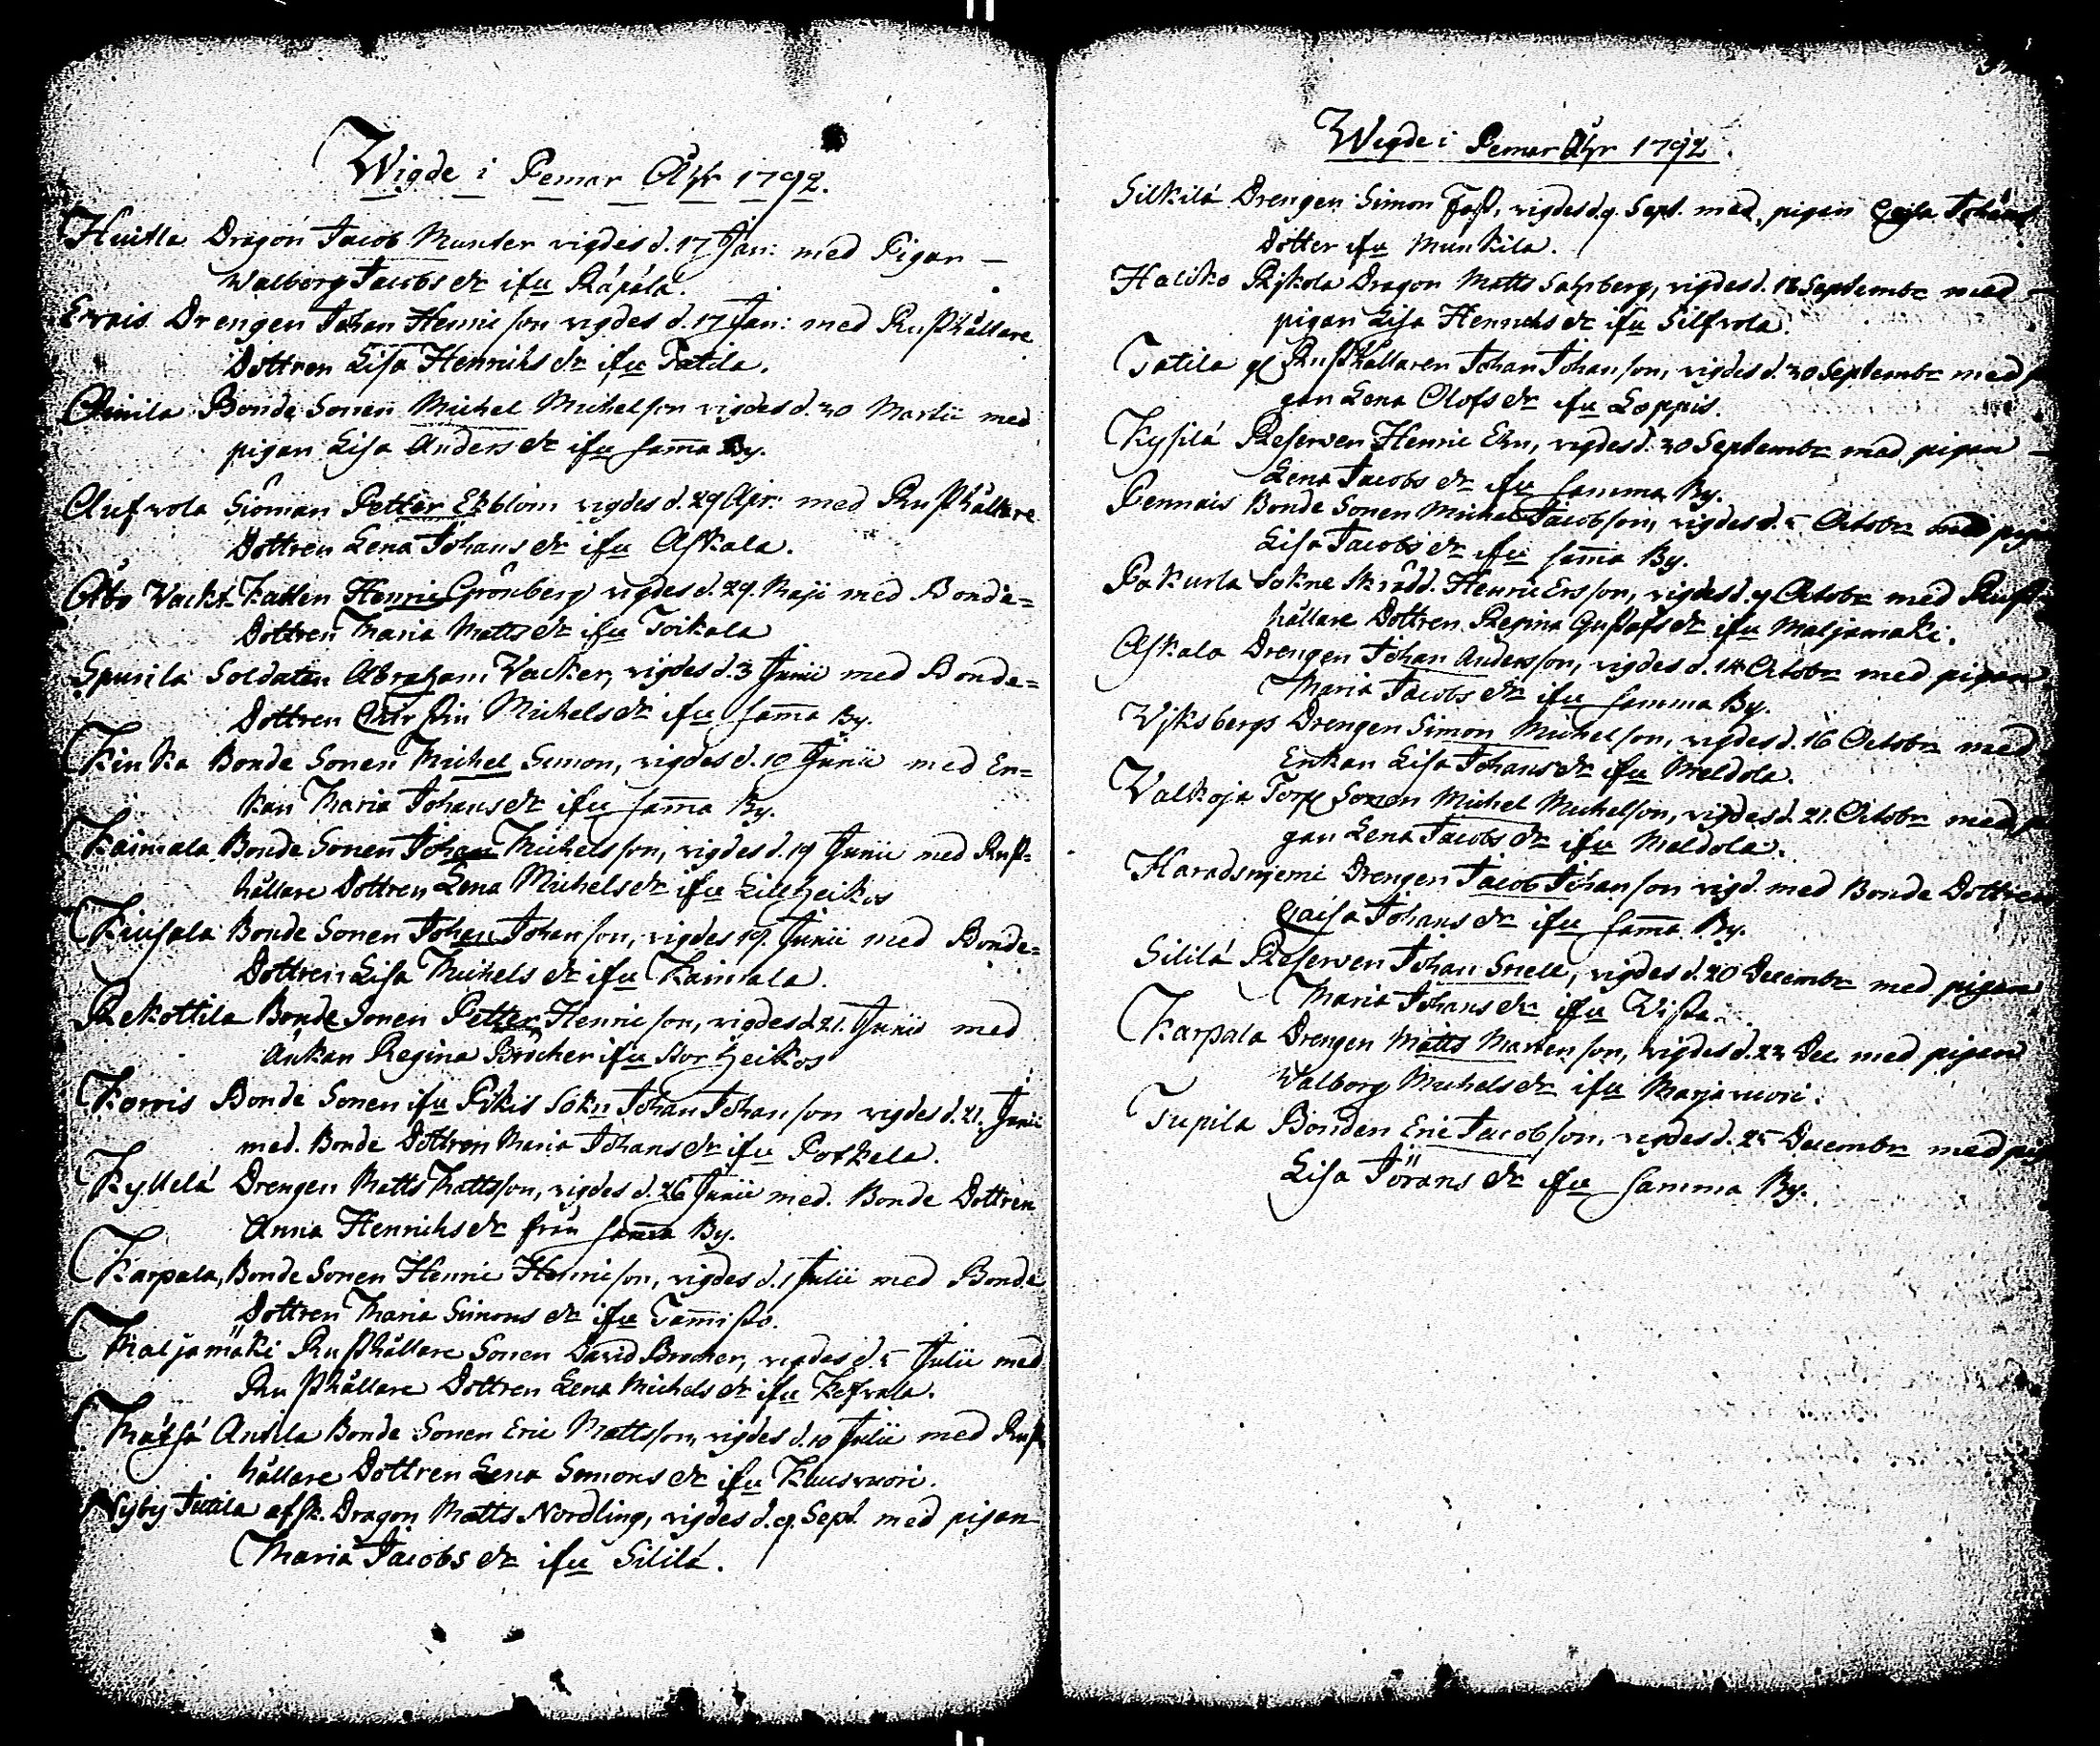 Wigde i Pemar Åhr 1792.
Huitla Dragon Jacob Munter vigdes d. 17 Jan: med Pigan —
Walborg Jacobs dr ifrå Räpälä.
Ervais Drengen Johan Henricson vigdes d. 17 Jan: med Rusthållare
Dottren Lisa Henrichs dr ifrå Tatila.
Bonde Sonen Michel Michelson vigdes d. 30 Martii med
pigan Lisa Anders dr ifrå sam̅a By.
Aufvola Siöman Petter Ekblom vigdes d. 29 Apr: med Rusthållare
Dottren Lena Johans dr ifrå Askala.
Åbo Vackt-Katten Henric Grönberg vigdes d. 29. Maji med Bonde=
Dottren Maria Matts dr ifrå Toikala
Spurila Soldaten Abraham Vacker, vigdes d. 3 Junii med Bonde=
Dottren Chirstin Michels dr ifrå sam̅a By.
Kinka Bonde Sonen Michel Simon, vigdes d. 10 Junii med En=
kan Maria Johans dr ifrå sam̅a By.
Kaimala Bonde Sonen Johan Michelsson, vigdes d. 19 Junii med Rust=
hållare Dottren Lena Michels dr ifrå Lillheikos
Kausala Bonde Sonen Johan Johanson, vigdes 19. Junii med Bonde=
Dottren Lisa Michels dr ifrå Kaimala.
Rekottila Bonde Sonen Petter Henricson, vigdes d. 21. Junii med
Änkan Regina Bröcher ifrå Stor heikos
Korris Bonde Sonen ifrå Pikis Sokn Johan Johanson vigdes d. 21. Junii
med. Bonde Dottren Maria Johans dr ifrå Porkela.
Kyllelä Drengen Matts Mattsson, vigdes d. 26 Junii med. Bonde Dottren
Anna Henrichs dr från sam̅a By.
Karpala, Bonde Sonen Henric Henricson, vigdes d. 1 Julii med Bonde
Dottren Maria Simons dr ifrå Tam̅isto.
Maljamäki Rusthållare Sonen David Brocher, vigdes d. 5 Julii med
Rusthållare Dottren Lena Michels dr ifrå Kefvala.
Antila Bonde Sonen Eric Mattsson, vigdes d. 10 Julii med Rust
hållare Dottren Lena Simons dr ifrå Kuusvuori.
Nyby Juttila afsk. Dragon Matts Nordling, vigdes d. 9. Sept. med pigan
Maria Jacobs dr ifrå Sililä.
Wigde i Pemar Åhr 1792.
Silkilä Drengen Simon Fast, vigdes d. 9. Sept. med pigan Caisa Johans
Dotter ifrå Munkila.
Haliko Rijkola Dragon Matts Sahlberg, vigdes d. 18 Septembr med —
pigan Lisa Henrichs dr ifrå Silfvola.
Tatila gl Rusthållaren Johan Johanson, vigdes d. 30 Septembr med
gan Lena Olofs dr ifrå Loppis.
Kysilä Reserven Henric Ehn, vigdes d. 30 Septembr med pigan —
Lena Jacobs dr ifrå samma By.
Pennais Bonde Sonen Michel Jacobson, vigdes d. 5 Octobr med pigan
Lisa Jacobs dr ifrå sam̅a By.
Pakurla Sokne Skrädd. Henric Ersson, vigdes d. 9 Octobr med Rust
hållare Dottren Regina Gustafs dr ifrå Maljamaki.
Askala Drengen Johan Andersson, vigdes d. 14 Octobr med pigan
Maria Jacobs dr ifrå samma By.
Vijksbergs Drengen Simon Michelson, vigdes d. 16 Octobr med
Enkan Lisa Johans dr ifrå Meldola.
Valkoja Torp Sonen Michel Michelson, vigdes d. 21. Octobr med
gan Lena Jacobs dr ifrå Meldola.
Haradsnjemi Drengen Jacob Johanson vigd. med Bonde Dottren
Caisa Johans dr ifrå sam̅a By.
Sililä Reserven Johan Snell, vigdes d. 20 Decembr med pigan
Maria Johans dr ifrå Vista.
Karpala Drengen Matts Martenson, vigdes d. 22 Dec. med pigan
Walborg Michels dr ifrå Marjavuori.
Tupila Bonden Eric Jacobson, vigdes d. 25 Decembr med
Lisa Jörans dr ifrå samma By.